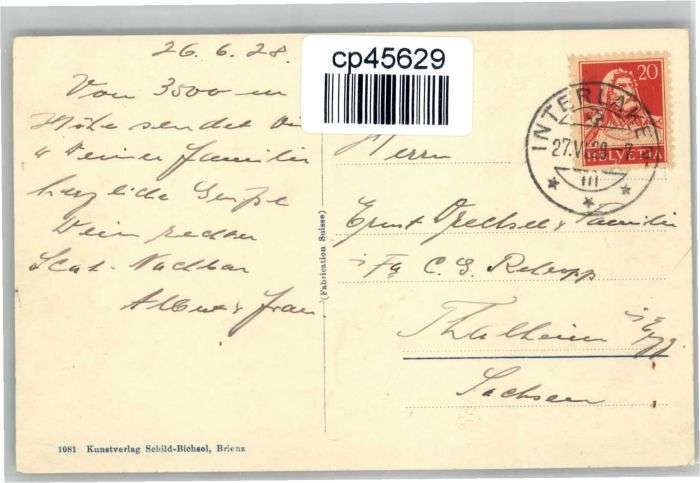 26.6.28.
Von 3500 m
Höhe sendet Dir
u Deiner Familie
herzliche Grüße
Dein rechter
Skat-Nachbar
Albert & Frau
cp45629
20
HELVETIA
INTERLAKEN
27.VI.28
III
Herrn
Ernst Drechsel & Familie
i/Fa C. G.
Thalheim
Sachsen
(Fabrication Suisse)
1081 Kunstverlag Schild-Bichsel, Brienz